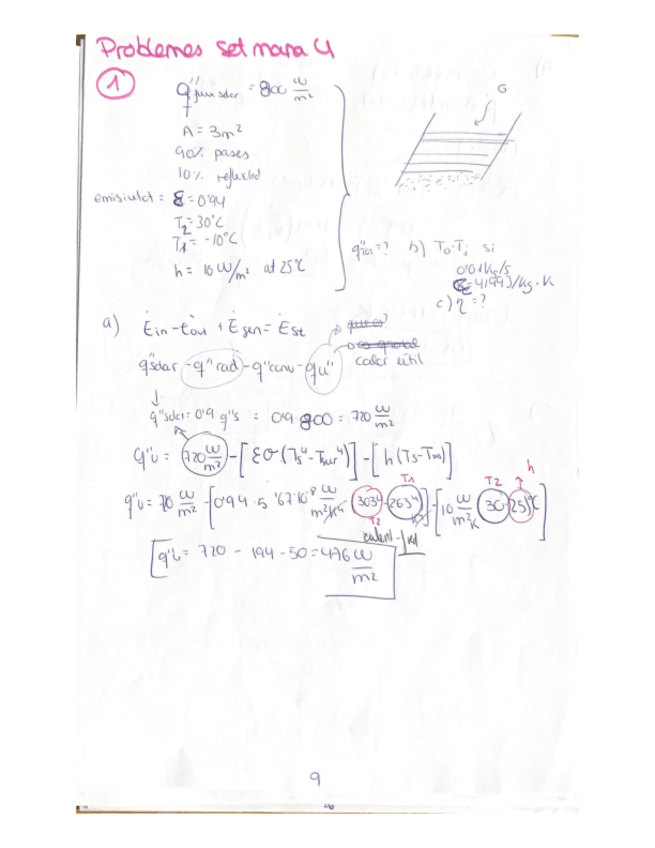 Problemes setmana 4
1
q"solar = 800 W/m²
G
A = 3m²
90% passes
10% reflected
emisivitat = ε = 0'94
T₂ = 30°C
T₁ = -10°C
h = 10 W/m² at 25°C
q"u = ? b) To-Ti si
0'01 kg/s
= 4194 J/kg·K
c) η = ?
a) Ėin - Ėout + Ėgen = Ėst
q"solar - q"rad - q"conv - qu"
calor útil
q"solar = 0'9 q"s = 0'9·800 = 720 W/m²
q"u = 720 W/m² - [εσ(Ts⁴ - Tsur⁴)] - [h(Ts - T∞)]
T1 T2 h
q"u = 70 W/m² - [0'94·5'67·10⁻⁸ W/m²K⁴ (303⁴ - 263⁴)] - [10 W/m²K (30-25)°C]
T2
q"u = 720 - 194 - 50 = 476 W/m²
9